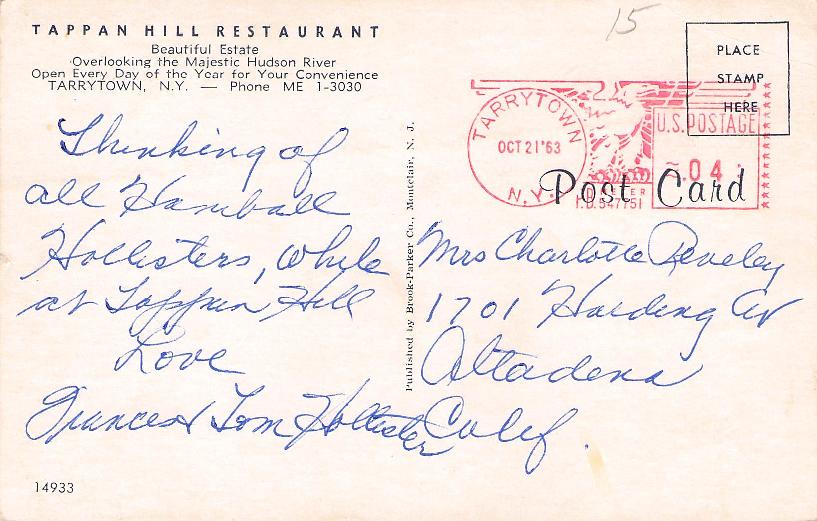 15
TAPPAN HILL RESTAURANT
Beautiful Estate
Overlooking the Majestic Hudson River
Open Every Day of the Year for Your Convenience
TARRYTOWN, N.Y. — Phone ME 1-3030
PLACE
STAMP
HERE
TARRYTOWN
OCT 21 '63
N.Y.
U.S. POSTAGE
.04
Post Card
Thinking of
all Hamball
Hollisters, while
at Tappan Hill
Love
Frances & Tom Hollister
Published by Brook-Parker Co., Montclair, N. J.
Mrs Charlotte Reveley
1701 Harding Av
Altadena
Calif.
14933